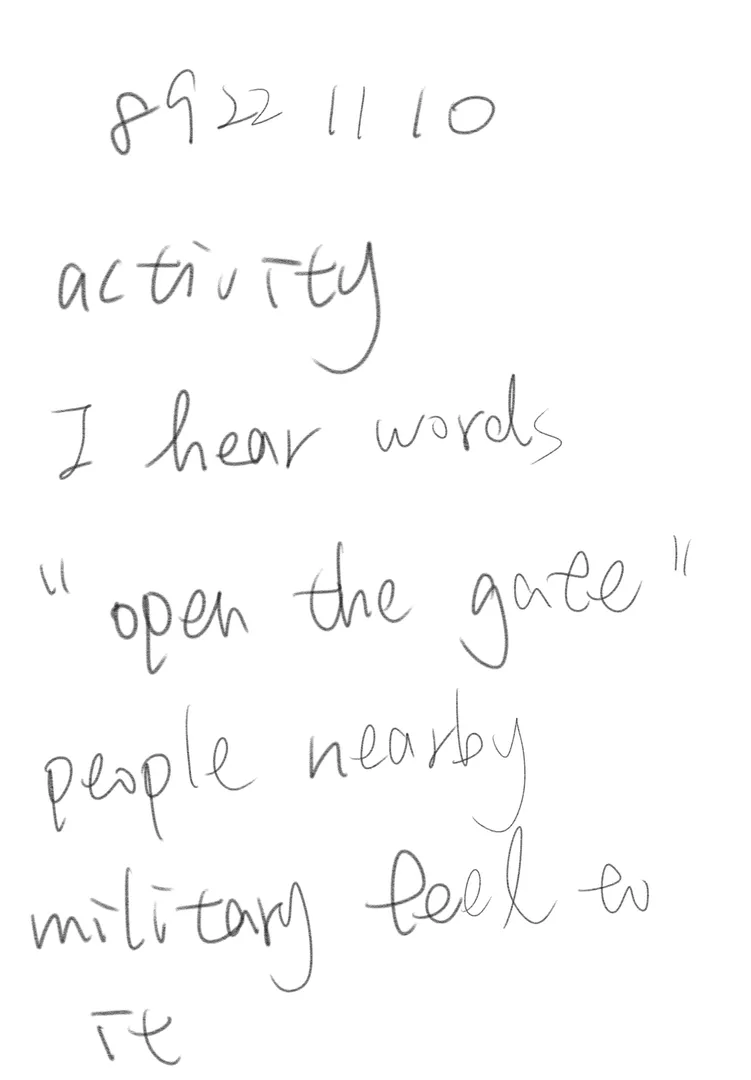 8922 11 10
activity
I hear words
"open the gate"
people nearby
military feel to
it